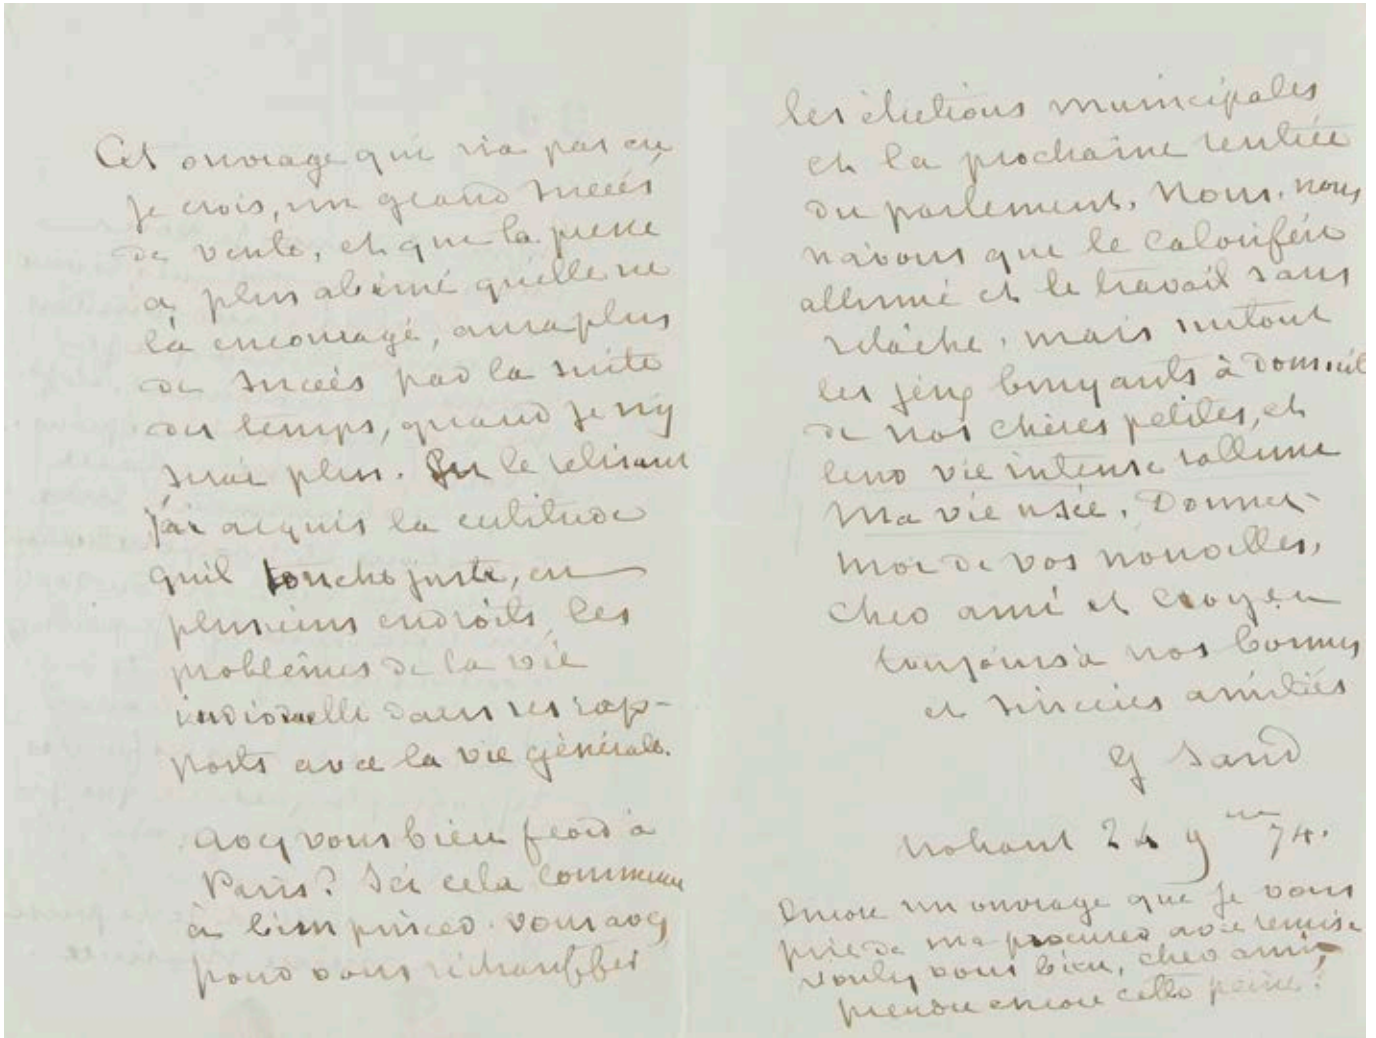 Cet ouvrage qui n'a pas eu
je crois, un grand succès
de vente, et que la presse
a plus abimé qu'elle ne
l'a encouragé, aura plus
de succès par la suite
des temps, quand je n'y
serai plus. En le relisant
j'ai acquis la certitude
qu'il touche juste, en
plusieurs endroits, les
problèmes de la vie
individuelle dans ses rap-
ports avec la vie générale.
Avez vous bien froid à
Paris? Ici cela commence
à bien pincer. Vous avez
pour vous réchauffer
les élections municipales
et la prochaine rentrée
du parlement. Nous, nous
n'avons que le calorifère
allumé et le travail sans
relâche, mais surtout
les jeux bruyants à domicil
de nos chères petites, et
leur vie intense rallume
ma vie usée. Donnez-
moi de vos nouvelles,
cher ami et croyez
toujours à nos bonnes
et sincères amitiés
G Sand
Nohant 24 9 74.
Encore un ouvrage que je vous
prie de me procurer avec remise
voulez vous bien, cher ami,
prendre encore cette peine?